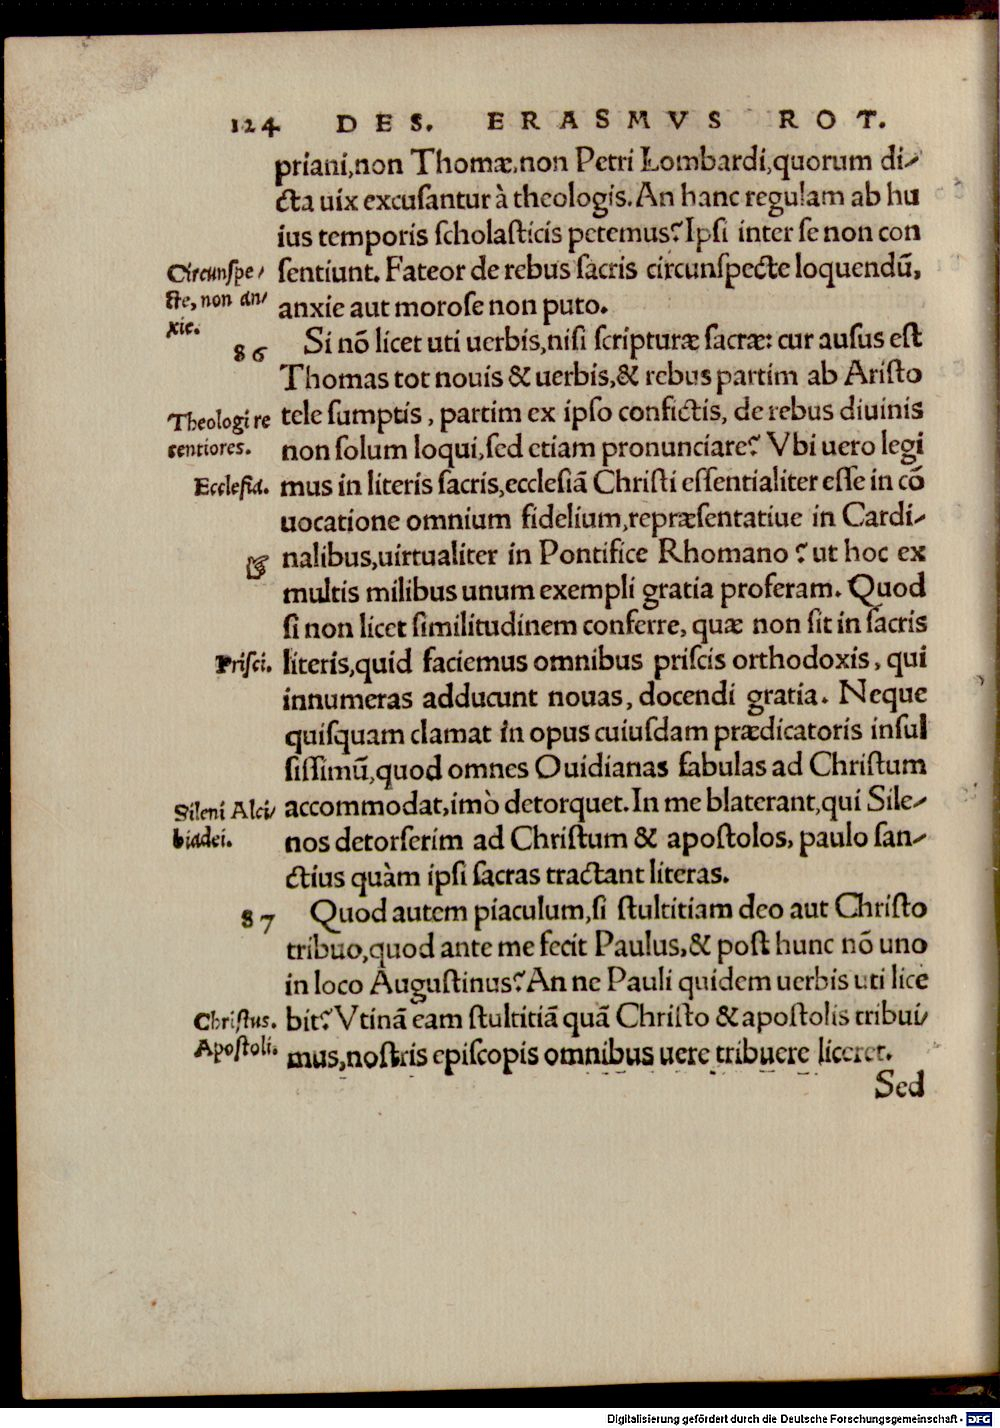 124 DES. ERASMVS ROT.
priani,non Thomæ,non Petri Lombardi,quorum di-
cta uix excusantur à theologis. An hanc regulam ab hu
ius temporis scholasticis petemus? Ipsi inter se non con
Circunspe-
sentiunt. Fateor de rebus sacris circunspecte loquendũ,
cte, non an-
anxie aut morose non puto.
xie.
86 Si nõ licet uti uerbis,nisi scripturæ sacræ: cur ausus est
Thomas tot nouis & uerbis,& rebus partim ab Aristo
Theologi re
tele sumptis, partim ex ipso confictis, de rebus diuinis
centiores.
non solum loqui,sed etiam pronunciare? Vbi uero legi
Ecclesia.
mus in literis sacris,ecclesiã Christi essentialiter esse in cõ
uocatione omnium fidelium,repræsentatiue in Cardi-
☞ nalibus,uirtualiter in Pontifice Rhomano? ut hoc ex
multis milibus unum exempli gratia proferam. Quod
si non licet similitudinem conferre, quæ non sit in sacris
Prisci.
literis,quid faciemus omnibus priscis orthodoxis, qui
innumeras adducunt nouas, docendi gratia. Neque
quisquam clamat in opus cuiusdam prædicatoris insul
sissimũ,quod omnes Ouidianas fabulas ad Christum
Sileni Alci-
accommodat,imò detorquet. In me blaterant,qui Sile-
biadei.
nos detorserim ad Christum & apostolos, paulo san-
ctius quàm ipsi sacras tractant literas.
87 Quod autem piaculum,si stultitiam deo aut Christo
tribuo,quod ante me fecit Paulus,& post hunc nõ uno
in loco Augustinus? An ne Pauli quidem uerbis uti lice
Christus.
bit? Vtinã eam stultitiã quã Christo & apostolis tribui-
Apostoli.
mus,nostris episcopis omnibus uere tribuere liceret.
Sed
Digitalisierung gefördert durch die Deutsche Forschungsgemeinschaft - DFG